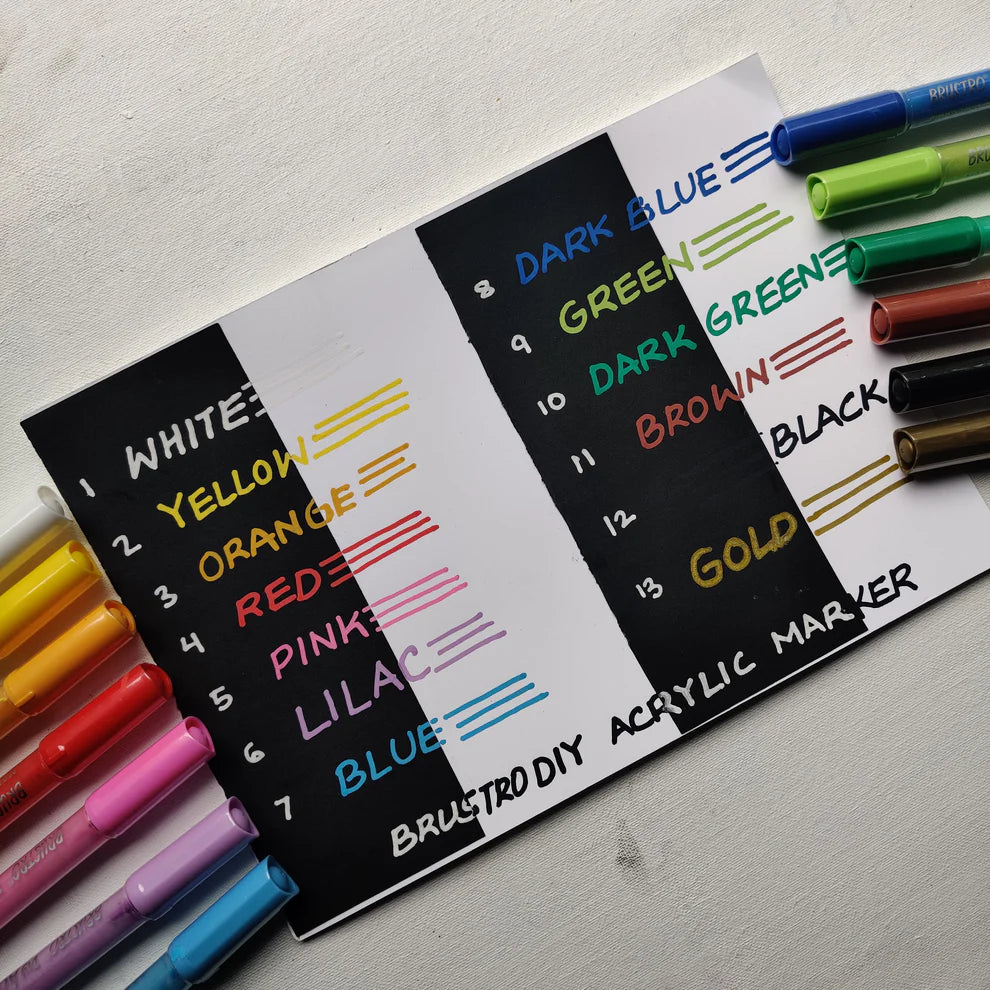 1 WHITE
2 YELLOW
3 ORANGE
4 RED
5 PINK
6 LILAC
7 BLUE
8 DARK BLUE
9 GREEN
10 DARK GREEN
11 BROWN
12 BLACK
13 GOLD
BRUSTRO DIY ACRYLIC MARKER
BRUSTRO
BRUSTRO
BRUSTRO